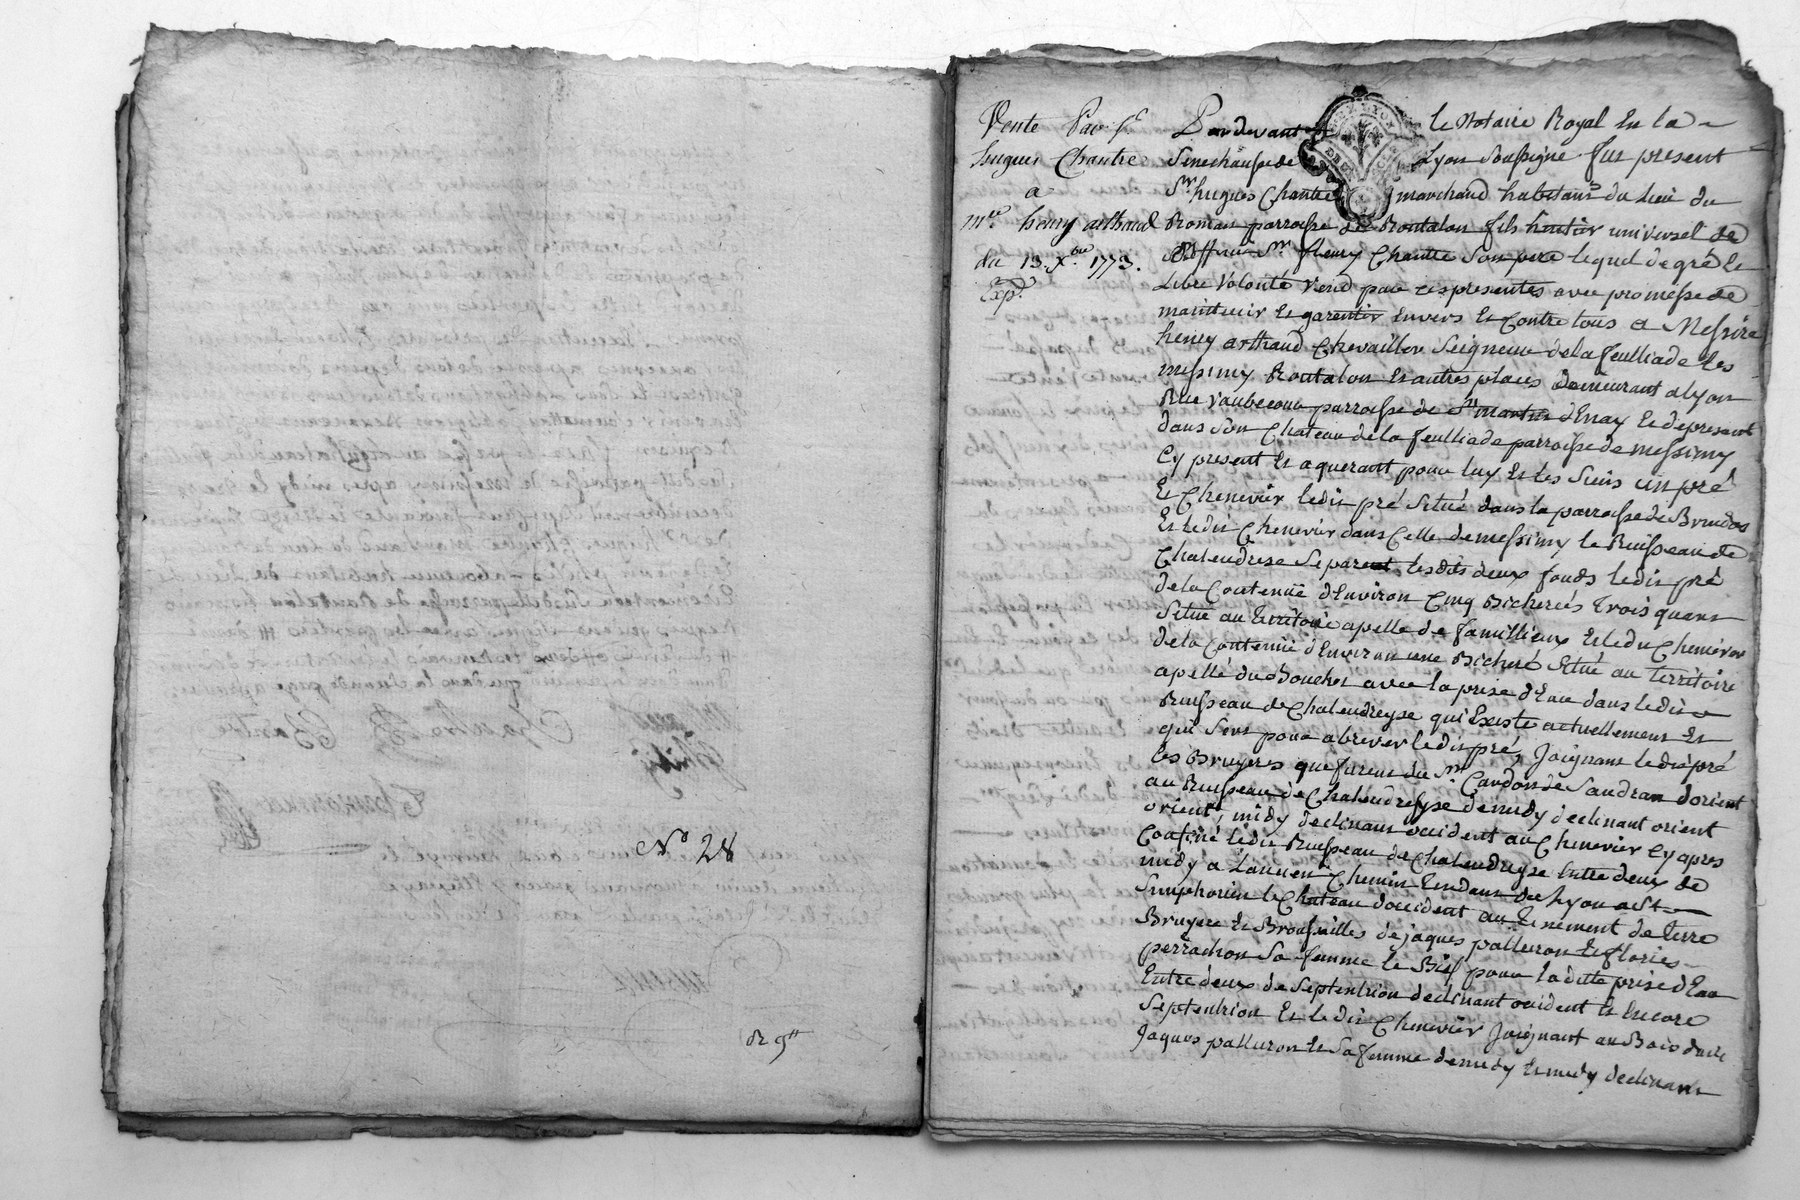 N° 28
de 9tt
Vente Par Sr.
hugues Chantre
a
mre. henry arthaud
du 13 Xbre 1773.
Exp.
Pardevant le Notaire Royal En la
Senechaussée de Lyon Soussigné fut present
Sr. hugues Chantre marchand habitant du Lieu du
Roman parroisse de Rontalon fils heritier universel de
Sr. fleury Chantre Son pere lequel de gré Et
Libre Volonté Vend par ces presentes avec promesse de
maintenir Et garentir Envers Et Contre tous a Messire
henry arthaud Chevaillier Seigneur de la feulliade les
messimy Rontalon Et autres places demeurant a lyon
Rue Vaubecour parroisse de St. martin d'Enay Et de present
dans Son Chateau de la feulliade parroisse de messimy
Cy present Et aquerant pour luy Et les Siens un pré
Et Chenevier ledit pré Situé dans la parroisse de Brindas
Et ledit Chenevier dans Celle de messimy le Ruisseau de
Chalendrese Separent lesdits deux fonds ledit pré
de la Contenüe d'Environ Cinq Bicherées Trois quars
Situé au Territoire apellé de famillieux Et ledit Chenevier
de la Contenüe d'Environ une Bicheré Situé au Territoire
apellé du Bouchet avec la prise d'Eau dans ledit
Ruisseau de Chalendreyse qui Existe actuellement Et
qui Sert pour abrever ledit pré, Joignant ledit pré
les Bruyeres que furent du Sr. Cardon de Sandran d'orient
au Ruisseau de Chalendreyse de midy declinant orient
orient, midy declinant occident au Chenevier Cy apres
Confiné ledit Ruisseau de Chalendreyse Entre deux de
midy a L'ancien Chemin Tendant de Lyon a St.
Simphorien le Chateau d'occident au Tenement de Terre
Bruyere Et Broussailles de jaques palluron Et floris
perrachon Sa femme le Bief pour la ditte prise d'Eau
Entre deux de Septentrion declinant occident Et Encore
Septentrion Et ledit Chenevier Joignant au Bois dudit
Jaques palluron Et Sa femme de midy Et midy declinant